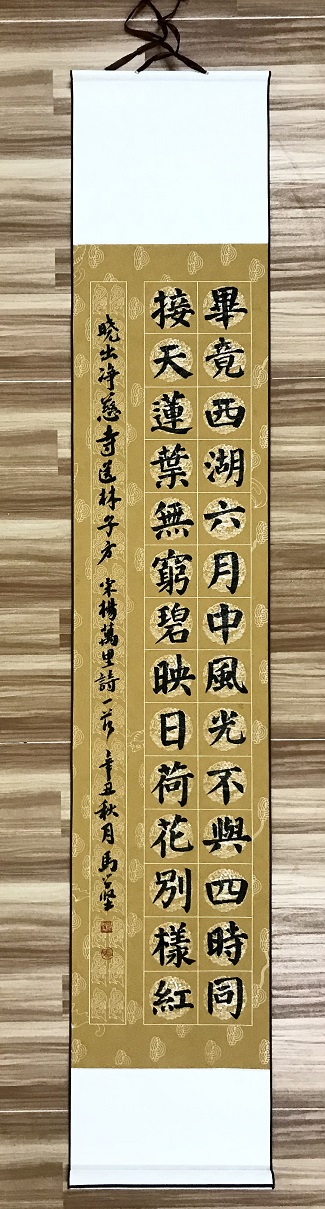 畢竟西湖六月中風光不與四時同
接天蓮葉無窮碧映日荷花別樣紅
曉出淨慈寺送林子方 宋楊萬里詩一首 辛丑秋月馬